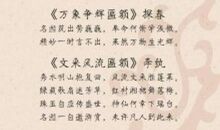 《万象争辉匾额》探春
名园筑出势巍巍，奉命何惭学浅微。
精妙一时言不出，果然万物生光辉。
《文采风流匾额》李纨
秀水明山抱复回，风流文采胜蓬莱。
绿裁歌扇迷芳草，红衬湘裙舞落梅。
珠玉自应传盛世，神仙何幸下瑶台。
名园一自邀游赏，未许凡人到此来。